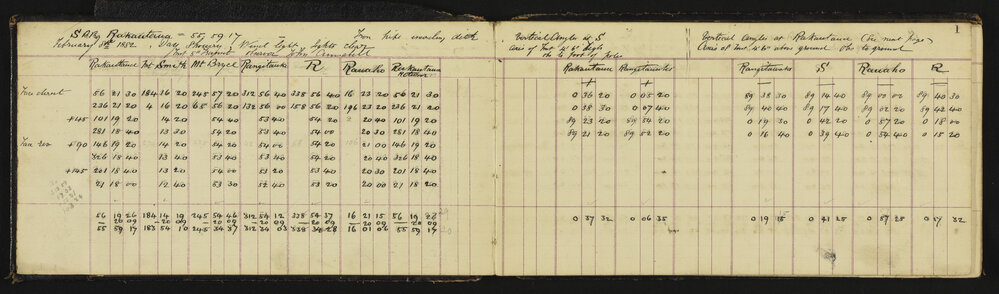 1
S @ Big Rakautama = 55, 59, 17
February 8th 1882, Day Showery, Wind light, lights
Inst 5th
Rakautama Mt Smith Mt Bryce Rangitauka R Rawaho Rakautama
56 21 30 184 16 20 245 57 20 312 56 40 338 56 40 16 23 20 56 21 30
236 21 20 4 16 20 65 56 20 132 56 00 158 56 20 196 23 20 236 21 20
+45 101 19 20 14 20 54 40 53 40 54 20 20 40 101 19 20
281 18 40 13 30 54 20 53 40 54 00 20 30 281 18 40
+90 146 19 20 14 20 54 20 54 00 54 20 21 00 146 19 20
326 18 40 13 40 53 40 53 40 54 20 20 40 326 18 40
+145 201 18 40 13 20 54 00 53 20 54 20 20 30 201 18 40
21 18 00 12 40 53 30 52 40 53 20 20 00 21 18 20
56 19 26 184 14 19 245 54 46 312 54 12 338 54 37 16 21 15 56 19 26
20 09 20 09 20 09 20 09 20 09 20 09 20 09
55 59 17 183 54 10 245 34 37 312 34 03 338 34 28 16 01 06 55 59 17
Vertical Angles at S
Axis of Inst 4' 6" high
Rakautama Rangitauka
0 36 20 0 05 20
0 38 30 0 07 40
89 23 20 89 54 20
89 21 20 89 52 20
0 37 32 0 06 35
Vertical Angles at Rakautama
Axis of Inst 4' 10" above ground Obs to ground
Rangitauka S Rawaho R
89 38 30 89 14 40 89 00 00 89 40 30
89 40 40 89 17 40 89 02 20 89 42 40
0 19 30 0 42 20 0 57 20 0 18 00
0 16 40 0 39 40 0 54 40 0 15 20
0 19 15 0 41 25 0 57 25 0 17 32